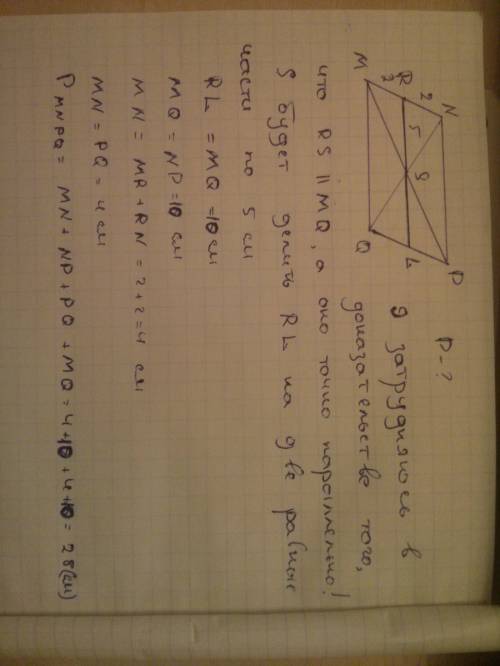 P - ?
N
2
R
2
M
5
S
P
L
Q
Я затрудняюсь в
доказательстве того,
что RS || MQ, а оно точно параллельно!
S будет делить RL на две равные
части по 5 см
RL = MQ = 10 см
MQ = NP = 10 см
MN = MR + RN = 2 + 2 = 4 см
MN = PQ = 4 см
P MNPQ = MN + NP + PQ + MQ = 4 + 10 + 4 + 10 = 28 (см)